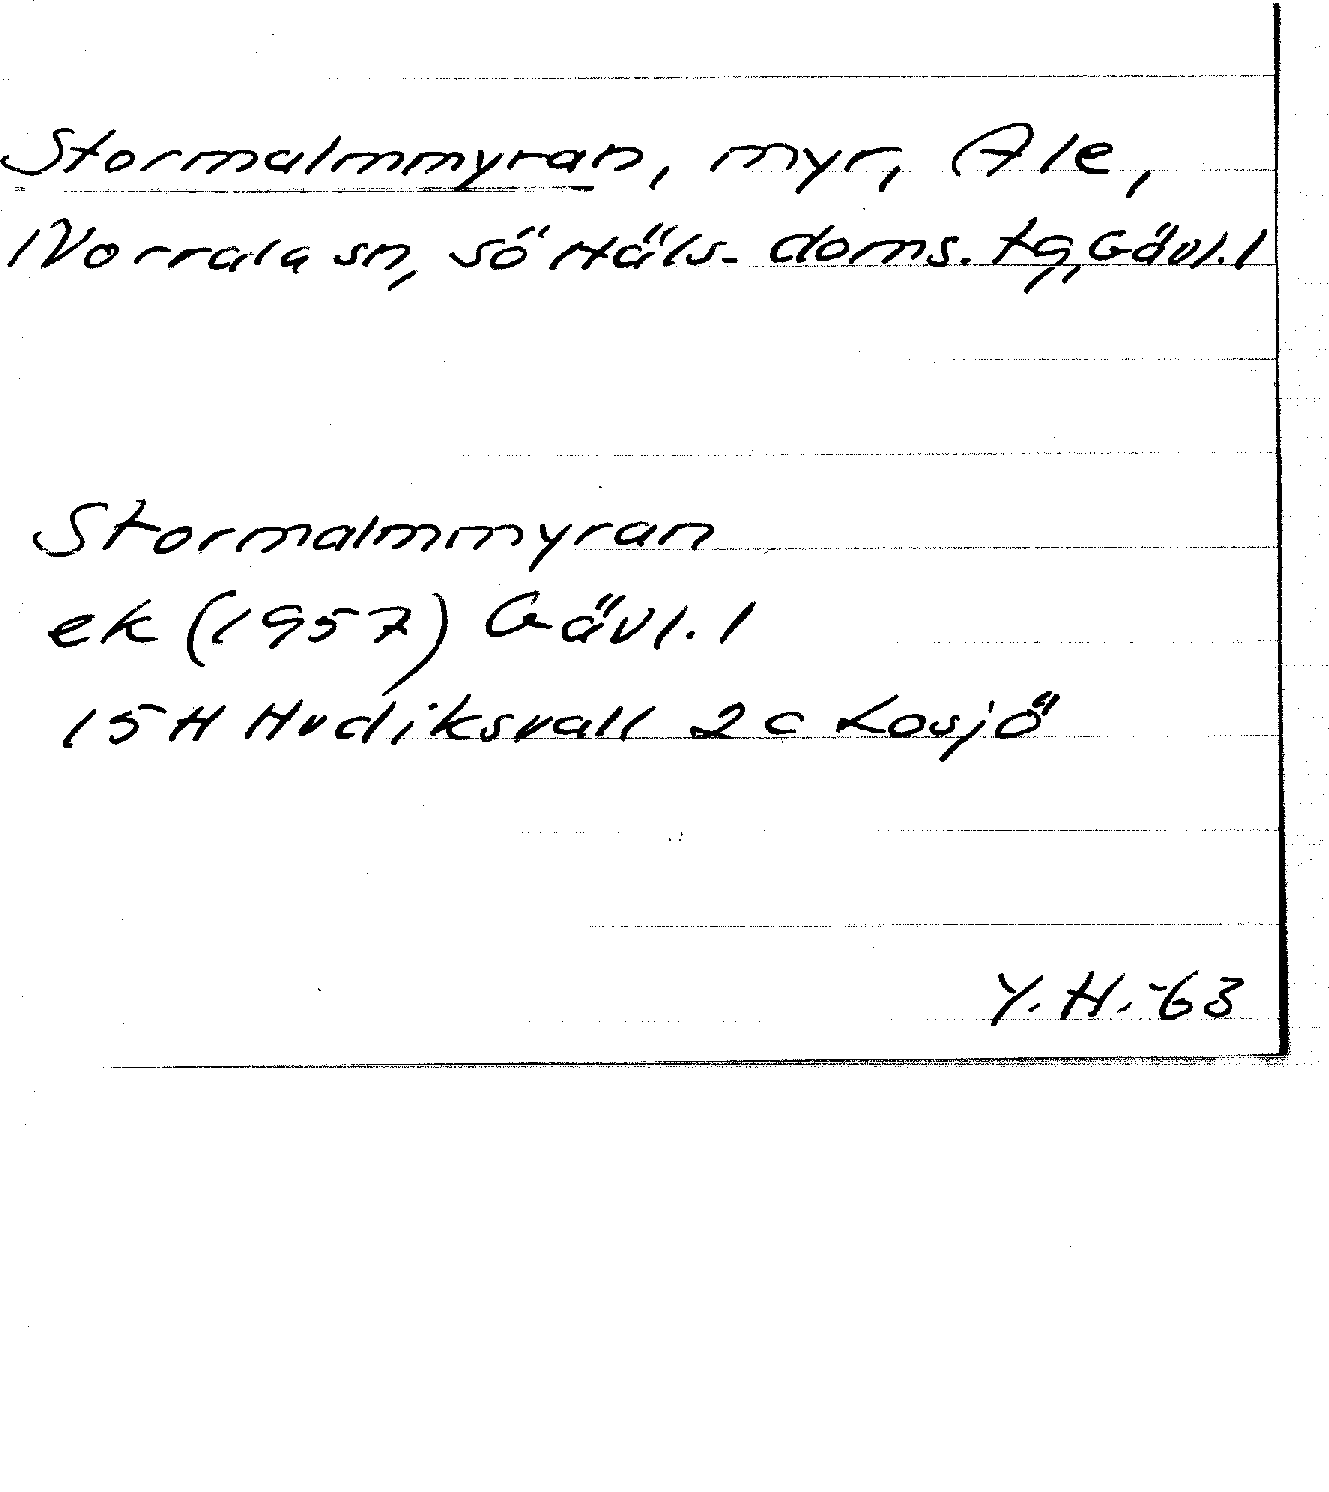 Stormalmmyran, myr, Ale,
Norrala sn, Sö Häls. doms. tg, Gävl. l
Stormalmmyran
ek (1957) Gävl. l
15H Hudiksvall 2 c Losjö
Y. H. -63